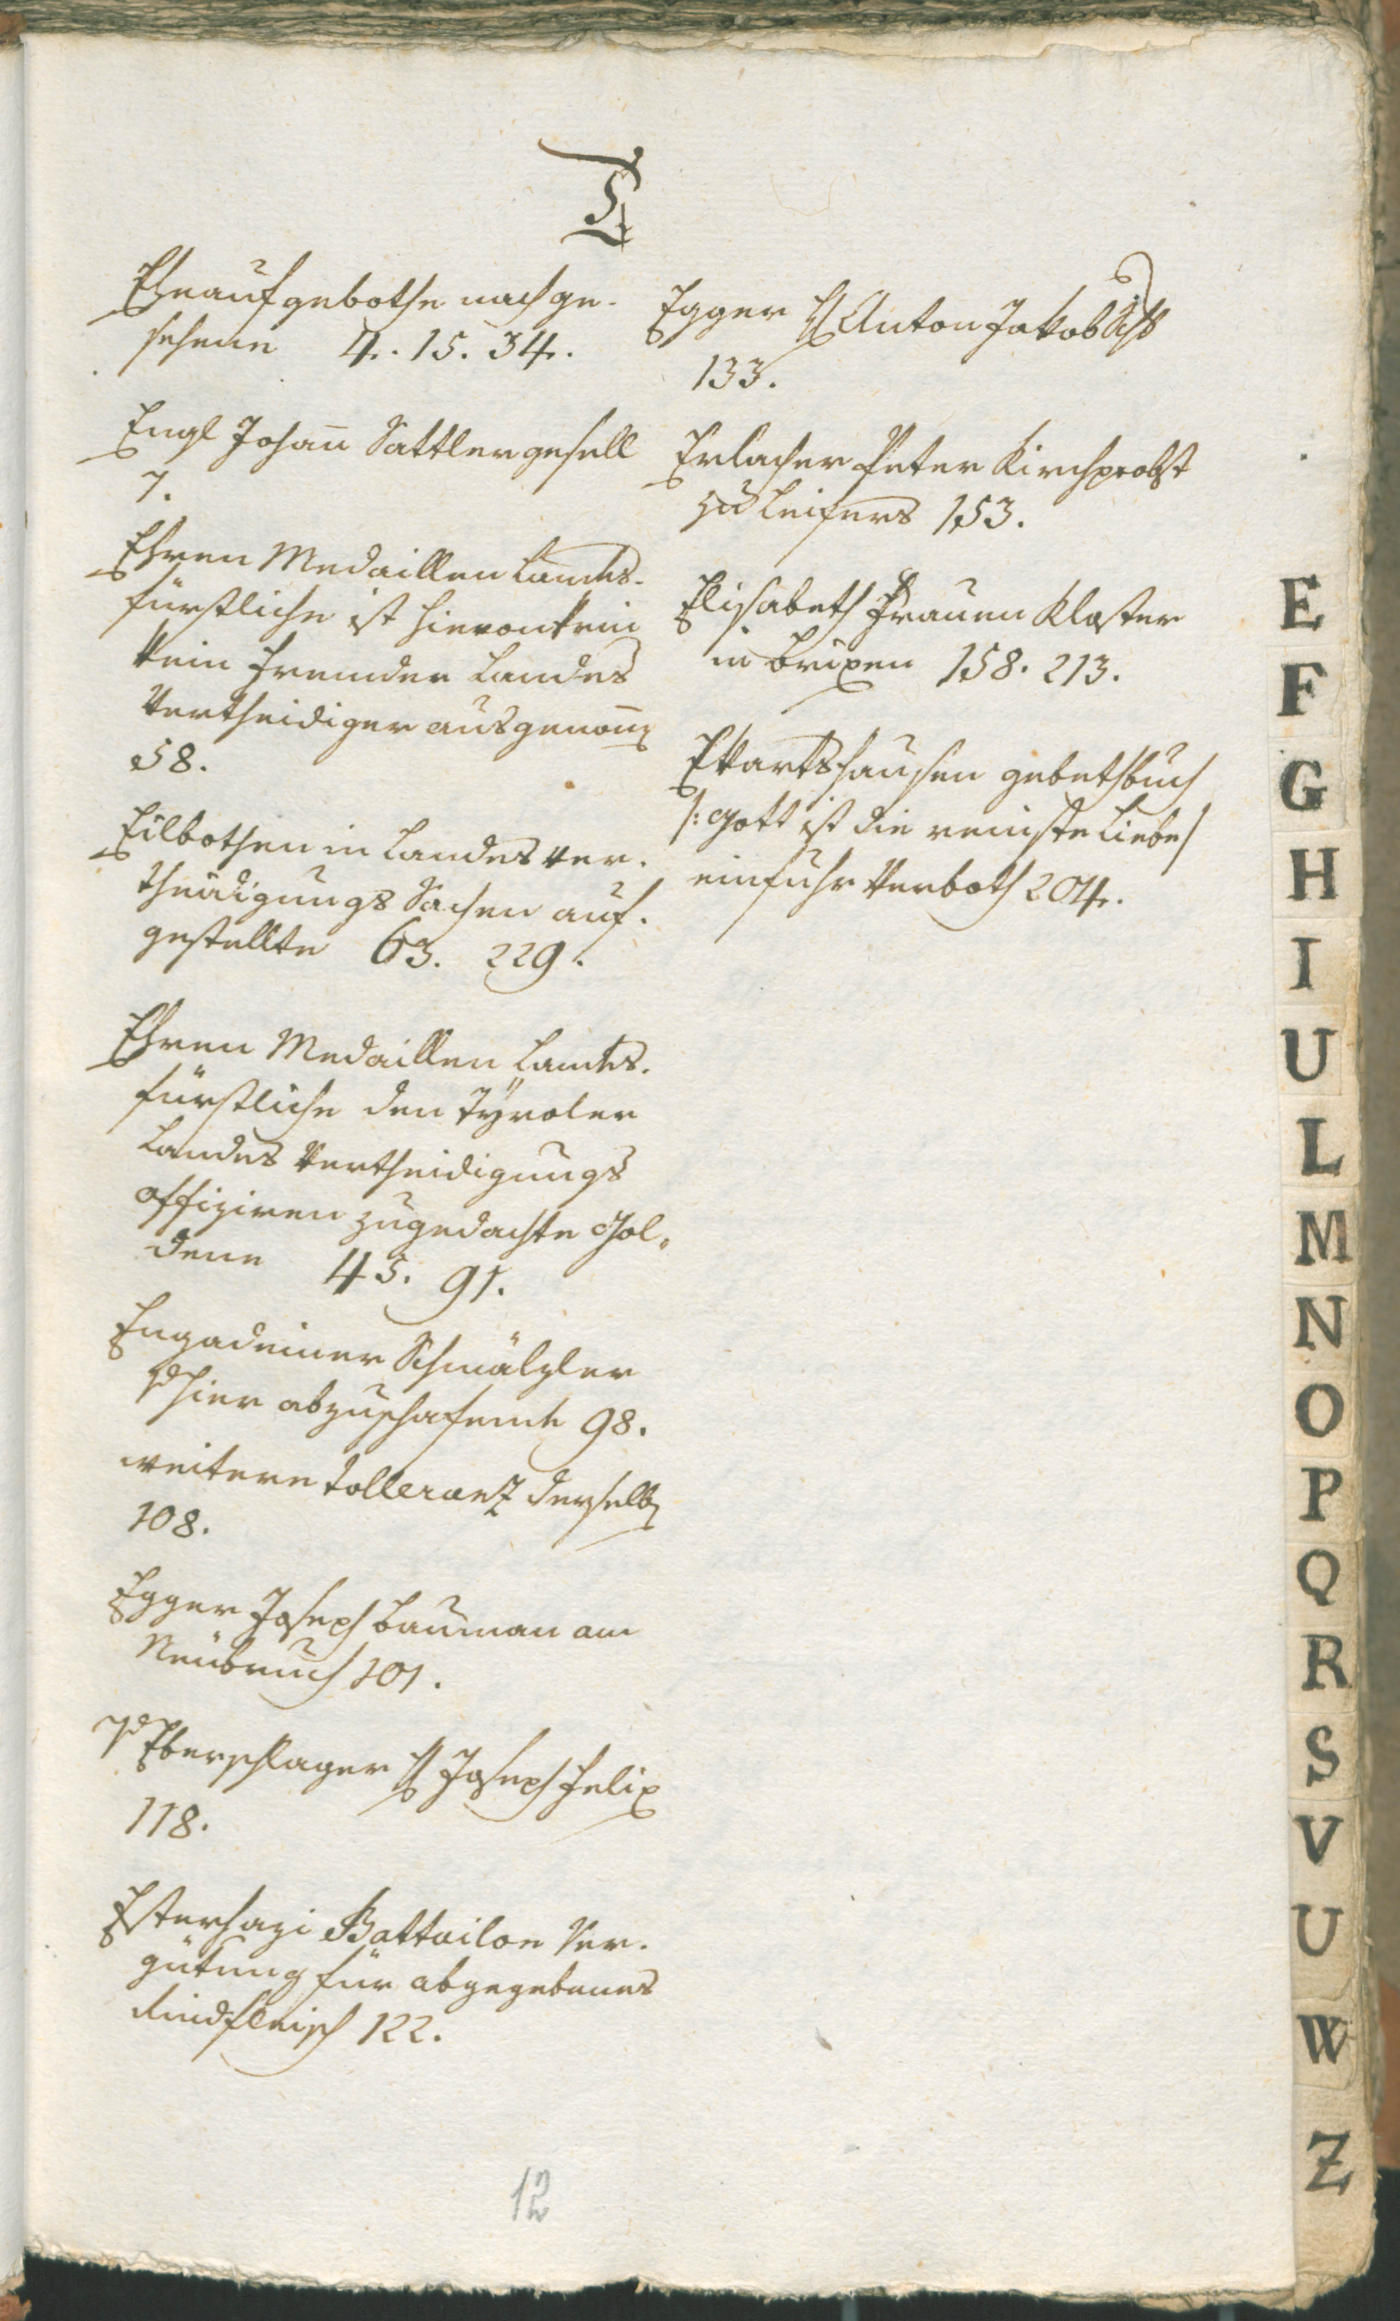 E
Eheaufgebothe nachge-
sehene 4. 15. 34.
Engl Johan̄ Sattlergesell
7.
Ehren Medaillen Landes-
fürstliche ist hievon kein
kein fremder Landes
Vertheidiger ausgenom̄en
58.
Eilbothen in Landes ver-
theidigungs Sachen auf-
gestellte 63. 229.
Ehren Medaillen Landes-
fürstliche den Tÿroler
Landes Vertheidigungs
offiziren zugedachte Gol-
dene 45. 91.
Engadeiner Schmälzler
hier abzuschafende 98.
weitere Tolleranz derselben
108.
Egger Joseph Bauman am
Neubruch 101.
Eberschlager H Joseph Felix
118.
Esterhazi Battailon Ver-
gütung für abgegebenes
Rindfleisch 122.
Egger H Anton Jakob
133.
Erlacher Peter Kirchprobst
zu Leifers 153.
Elisabeth Frauen Kloster
in Brixen 158. 213.
Ekartshausen gebethbuch
/: Gott ist die reinste Liebe/
einfuhr Verboth 204.
12
E
F
G
H
I
U
L
M
N
O
P
Q
R
S
V
U
W
Z